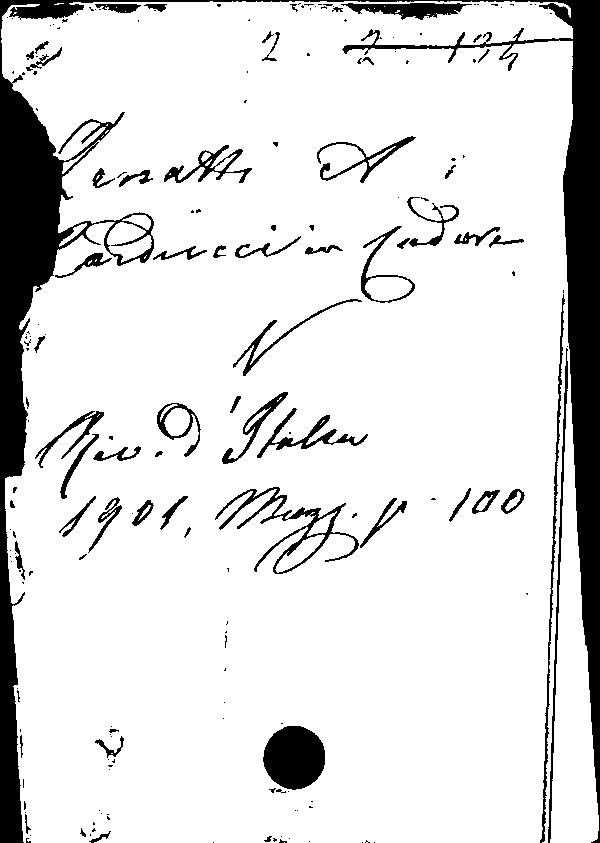 2. 2. 134
Zenatti A:
Carducci in Cadore
Riv. d'Italia
1901, Magg. p. 100